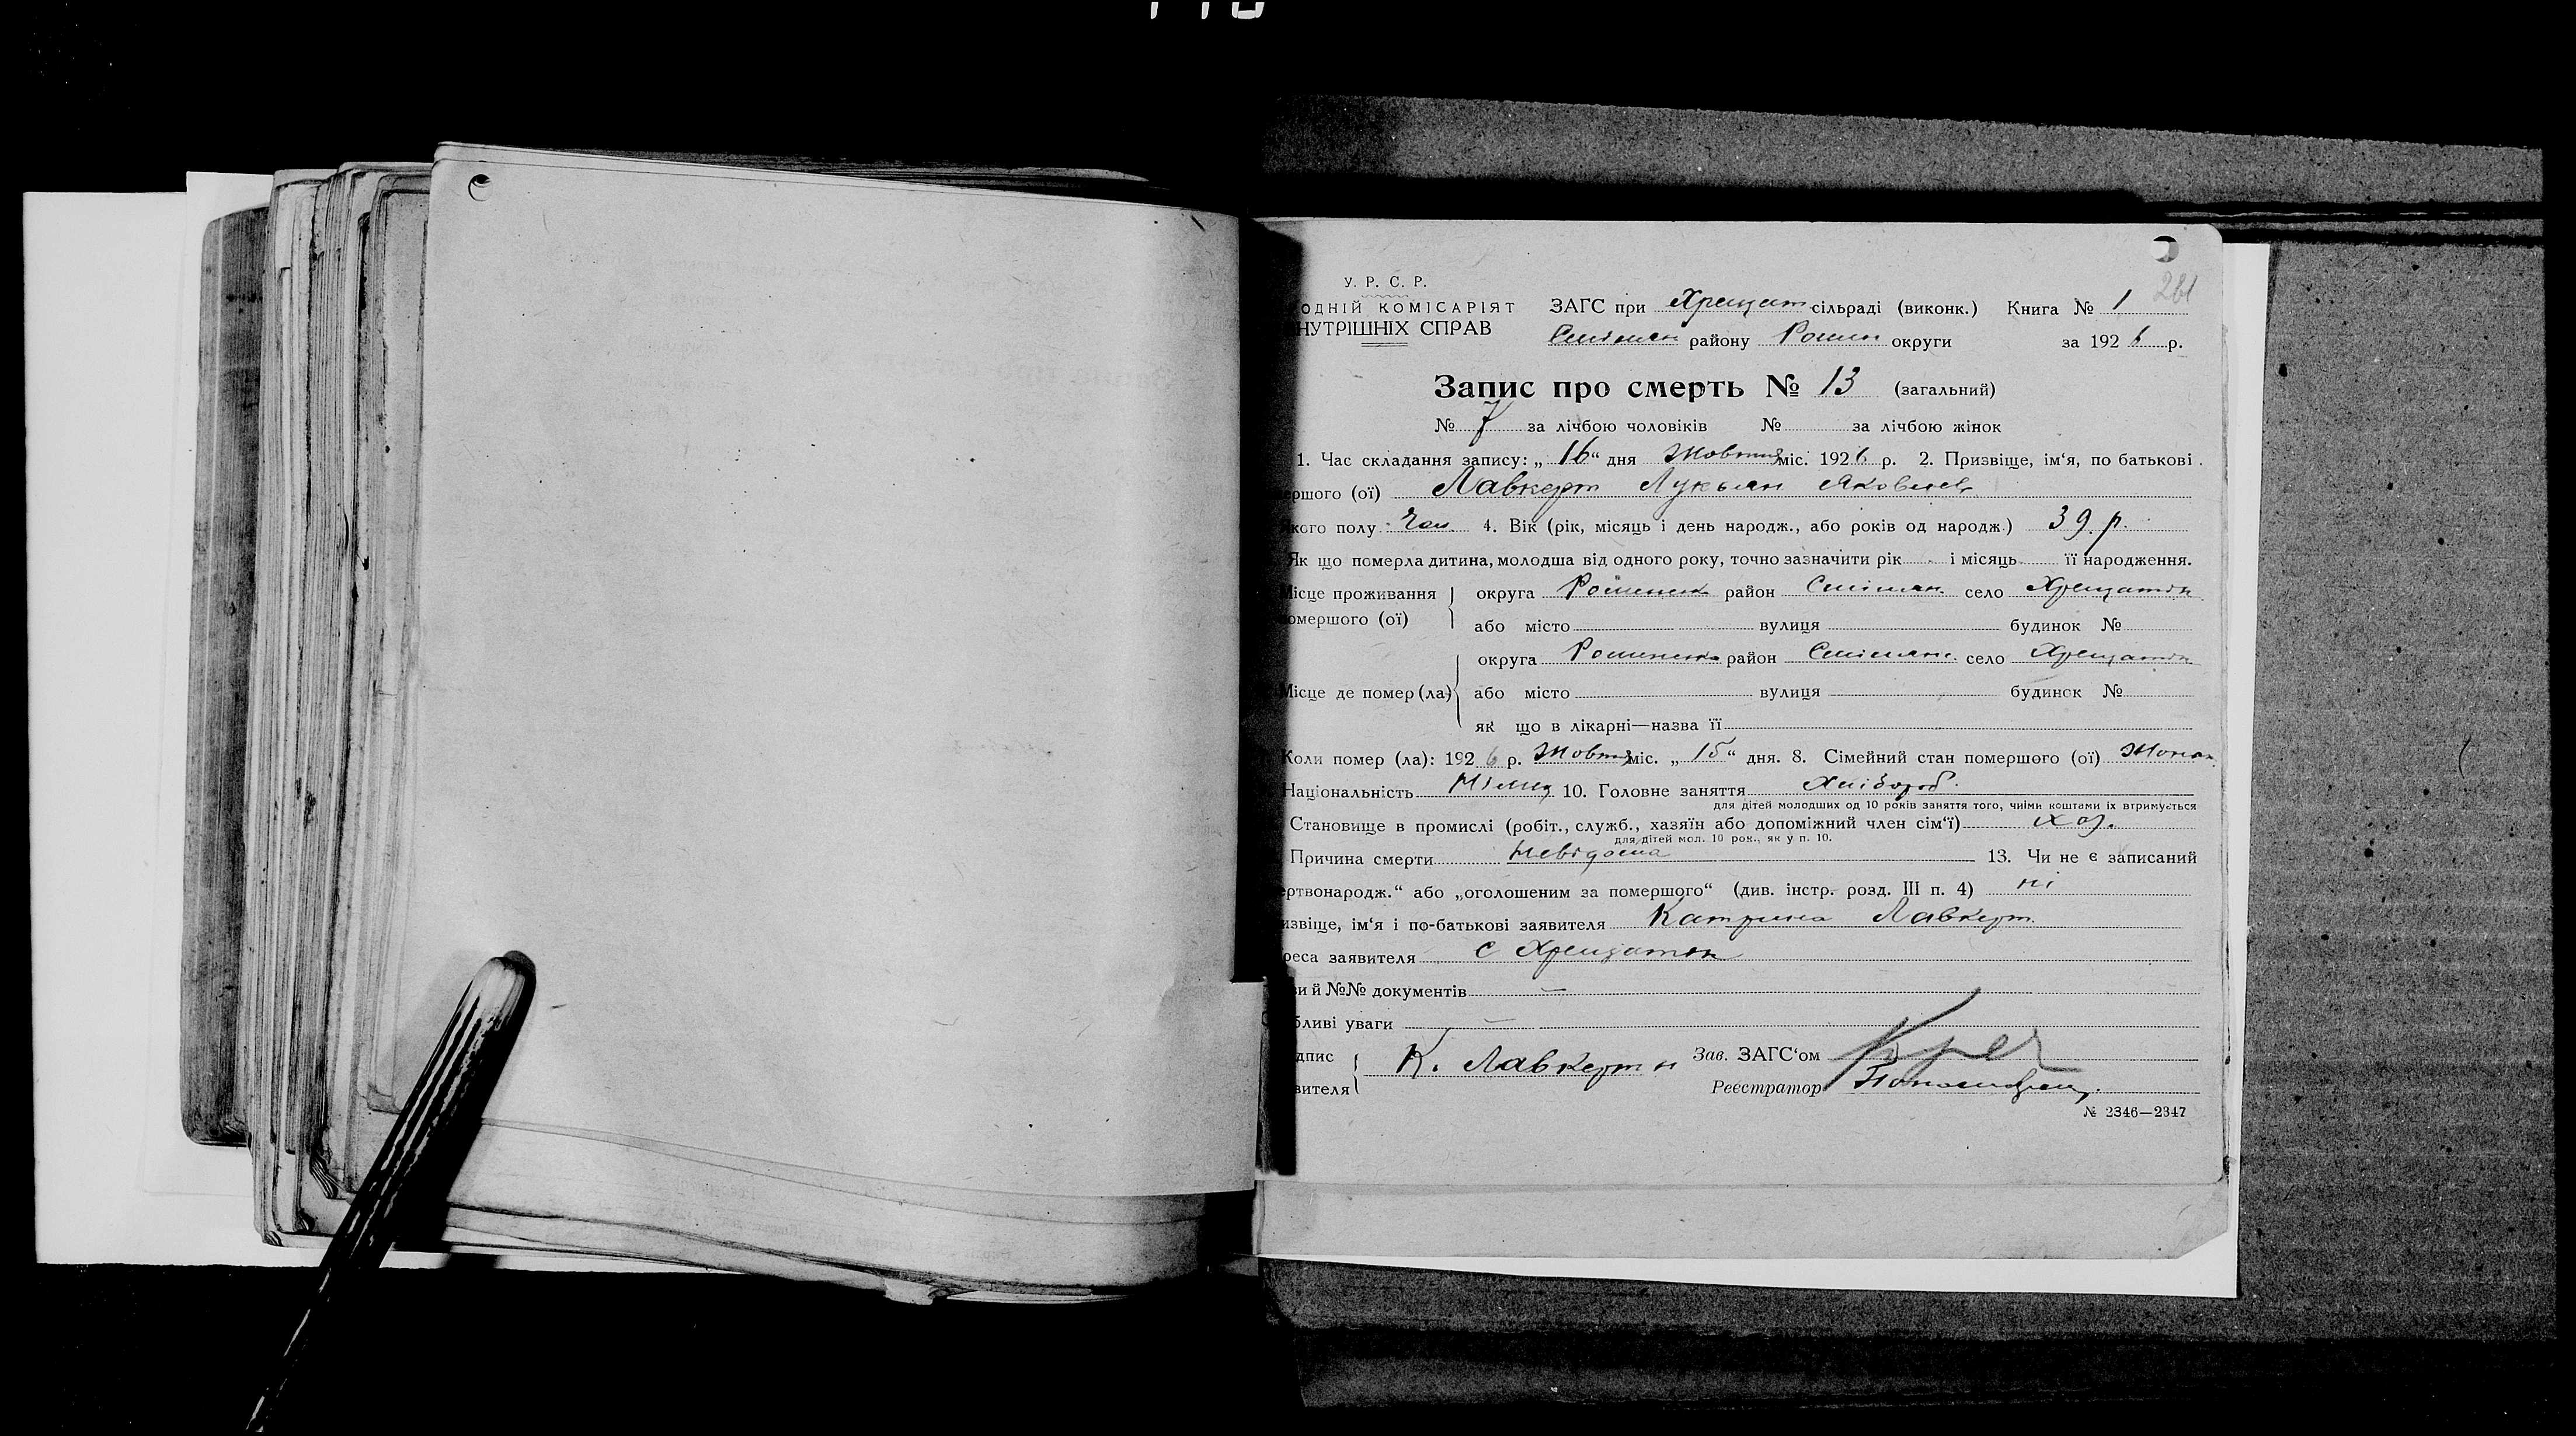 У. Р. С. Р.
ОДНІЙ КОМІСАРІЯТ
НУТРІШНІХ СПРАВ
ЗАГС при Хрещат сільраді (виконк.) Книга № 1
261
Смілян району Ромен округи за 1926 р.
Запис про смерть № 13 (загальний)
№ 7 за лічбою чоловіків № за лічбою жінок
1. Час складання запису: „16“ дня Жовтня міс. 1926 р. 2. Призвіще, ім‘я, по батькові
ершого (ої) Лавкерт Лукьян Яковлев
кого полу Чол 4. Вік (рік, місяць і день народж., або років од народж.) 39 р.
Як що померла дитина, молодша від одного року, точно зазначити рік і місяць її народження.
Місце проживання округа Роменськ район Смілян. село Хрещатик
омершого (ої) або місто вулиця будинок №
округа Роменськ район Смілян. село Хрещатик
Місце де помер (ла) або місто вулиця будинок №
як що в лікарні—назва її
Коли помер (ла): 1926 р. Жовтня міс. „15“ дня. 8. Сімейний стан помершого (ої) Жонат
Національність Німец 10. Головне заняття Хлібороб.
для дітей молодших од 10 років заняття того, чиїми коштами їх втримується
Становище в промислі (робіт., служб., хазяїн або допоміжний член сім‘ї) хаз.
для дітей мол. 10 рок., як у п. 10.
Причина смерти Невідома 13. Чи не є записаний
ертвонародж.“ або „оголошеним за помершого“ (див. інстр. розд. III п. 4) ні
извіще, ім‘я і по-батькові заявителя Катрина Лавкерт.
реса заявителя с Хрещатик
ви й №№ документів —
бливі уваги —
дпис К. Лавкерт Зав. ЗАГС‘ом
вителя Реєстратор
№ 2346—2347